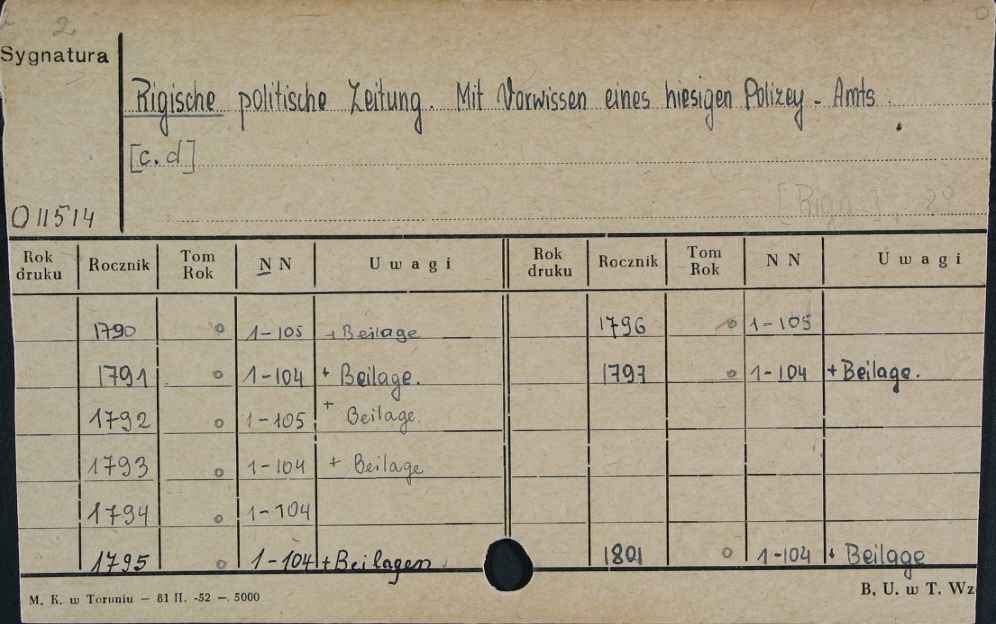 2
Sygnatura
Rigische politische Zeitung. Mit Vorwissen eines hiesigen Polizey - Amts.
[c.d]
O11514
[Riga], 8°
Rok druku Rocznik Tom Rok N N Uwagi Rok druku Rocznik Tom Rok N N Uwagi
1790 o 1-105 + Beilage 1796 o 1-105
1791 o 1-104 + Beilage. 1797 o 1-104 + Beilage.
1792 o 1-105 + Beilage.
1793 o 1-104 + Beilage
1794 o 1-104
1795 o 1-104 + Beilagen 1801 o 1-104 + Beilage
M. K. w Toruniu — 81 II. -52 — 5000 B. U. w T. Wz